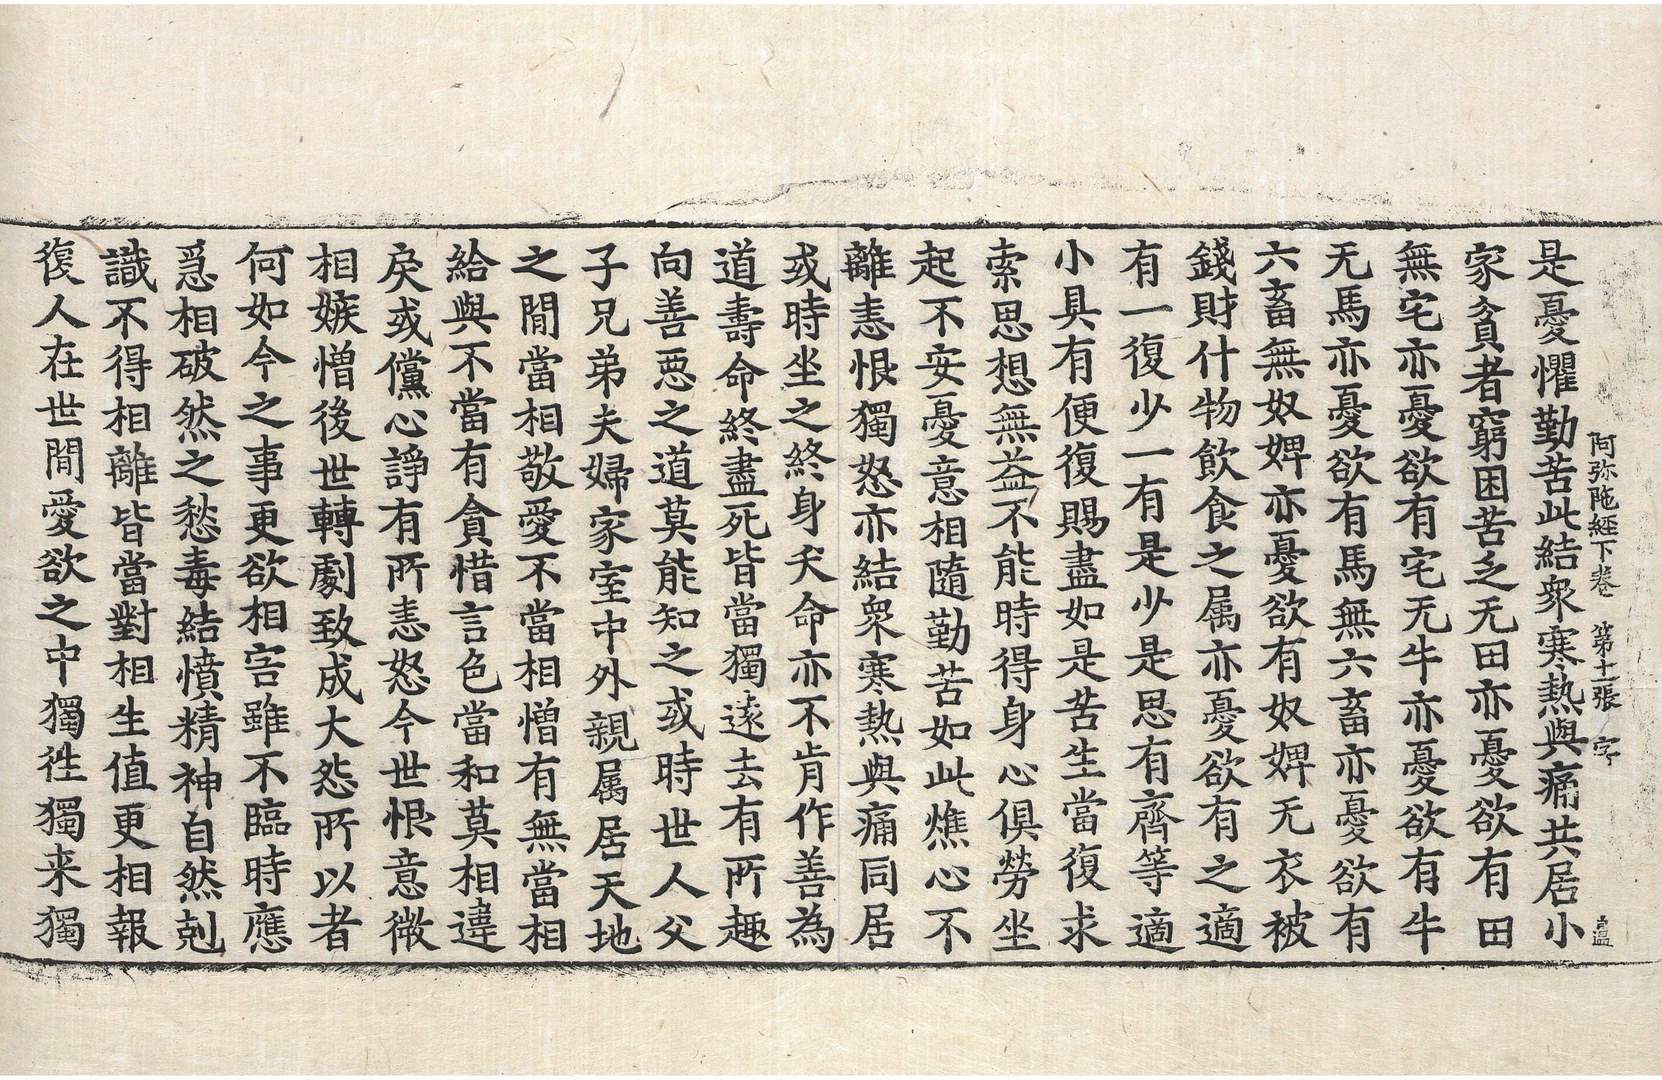 阿弥陁經下卷 第十一張 字
是憂懼勤苦此結衆寒熱與痛共居小
家貧者窮困苦乏无田亦憂欲有田
無宅亦憂欲有宅无牛亦憂欲有牛
无馬亦憂欲有馬無六畜亦憂欲有
六畜無奴婢亦憂欲有奴婢无衣被
錢財什物飲食之属亦憂欲有之適
有一復少一有是少是思有齊等適
小具有便復賜盡如是苦生當復求
索思想無益不能時得身心俱勞坐
起不安憂意相隨勤苦如此燋心不
離恚恨獨怒亦結衆寒熱與痛同居
或時坐之終身夭命亦不肯作善為
道壽命終盡死皆當獨遠去有所趣
向善惡之道莫能知之或時世人父
子兄弟夫婦家室中外親属居天地
之閒當相敬愛不當相憎有無當相
給與不當有貪惜言色當和莫相違
戾或儻心諍有所恚怒今世恨意微
相嫉憎後世轉劇致成大怨所以者
何如今之事更欲相害雖不臨時應
急相破然之愁毒結憤精神自然剋
識不得相離皆當對相生值更相報
復人在世閒愛欲之中獨徃獨来獨